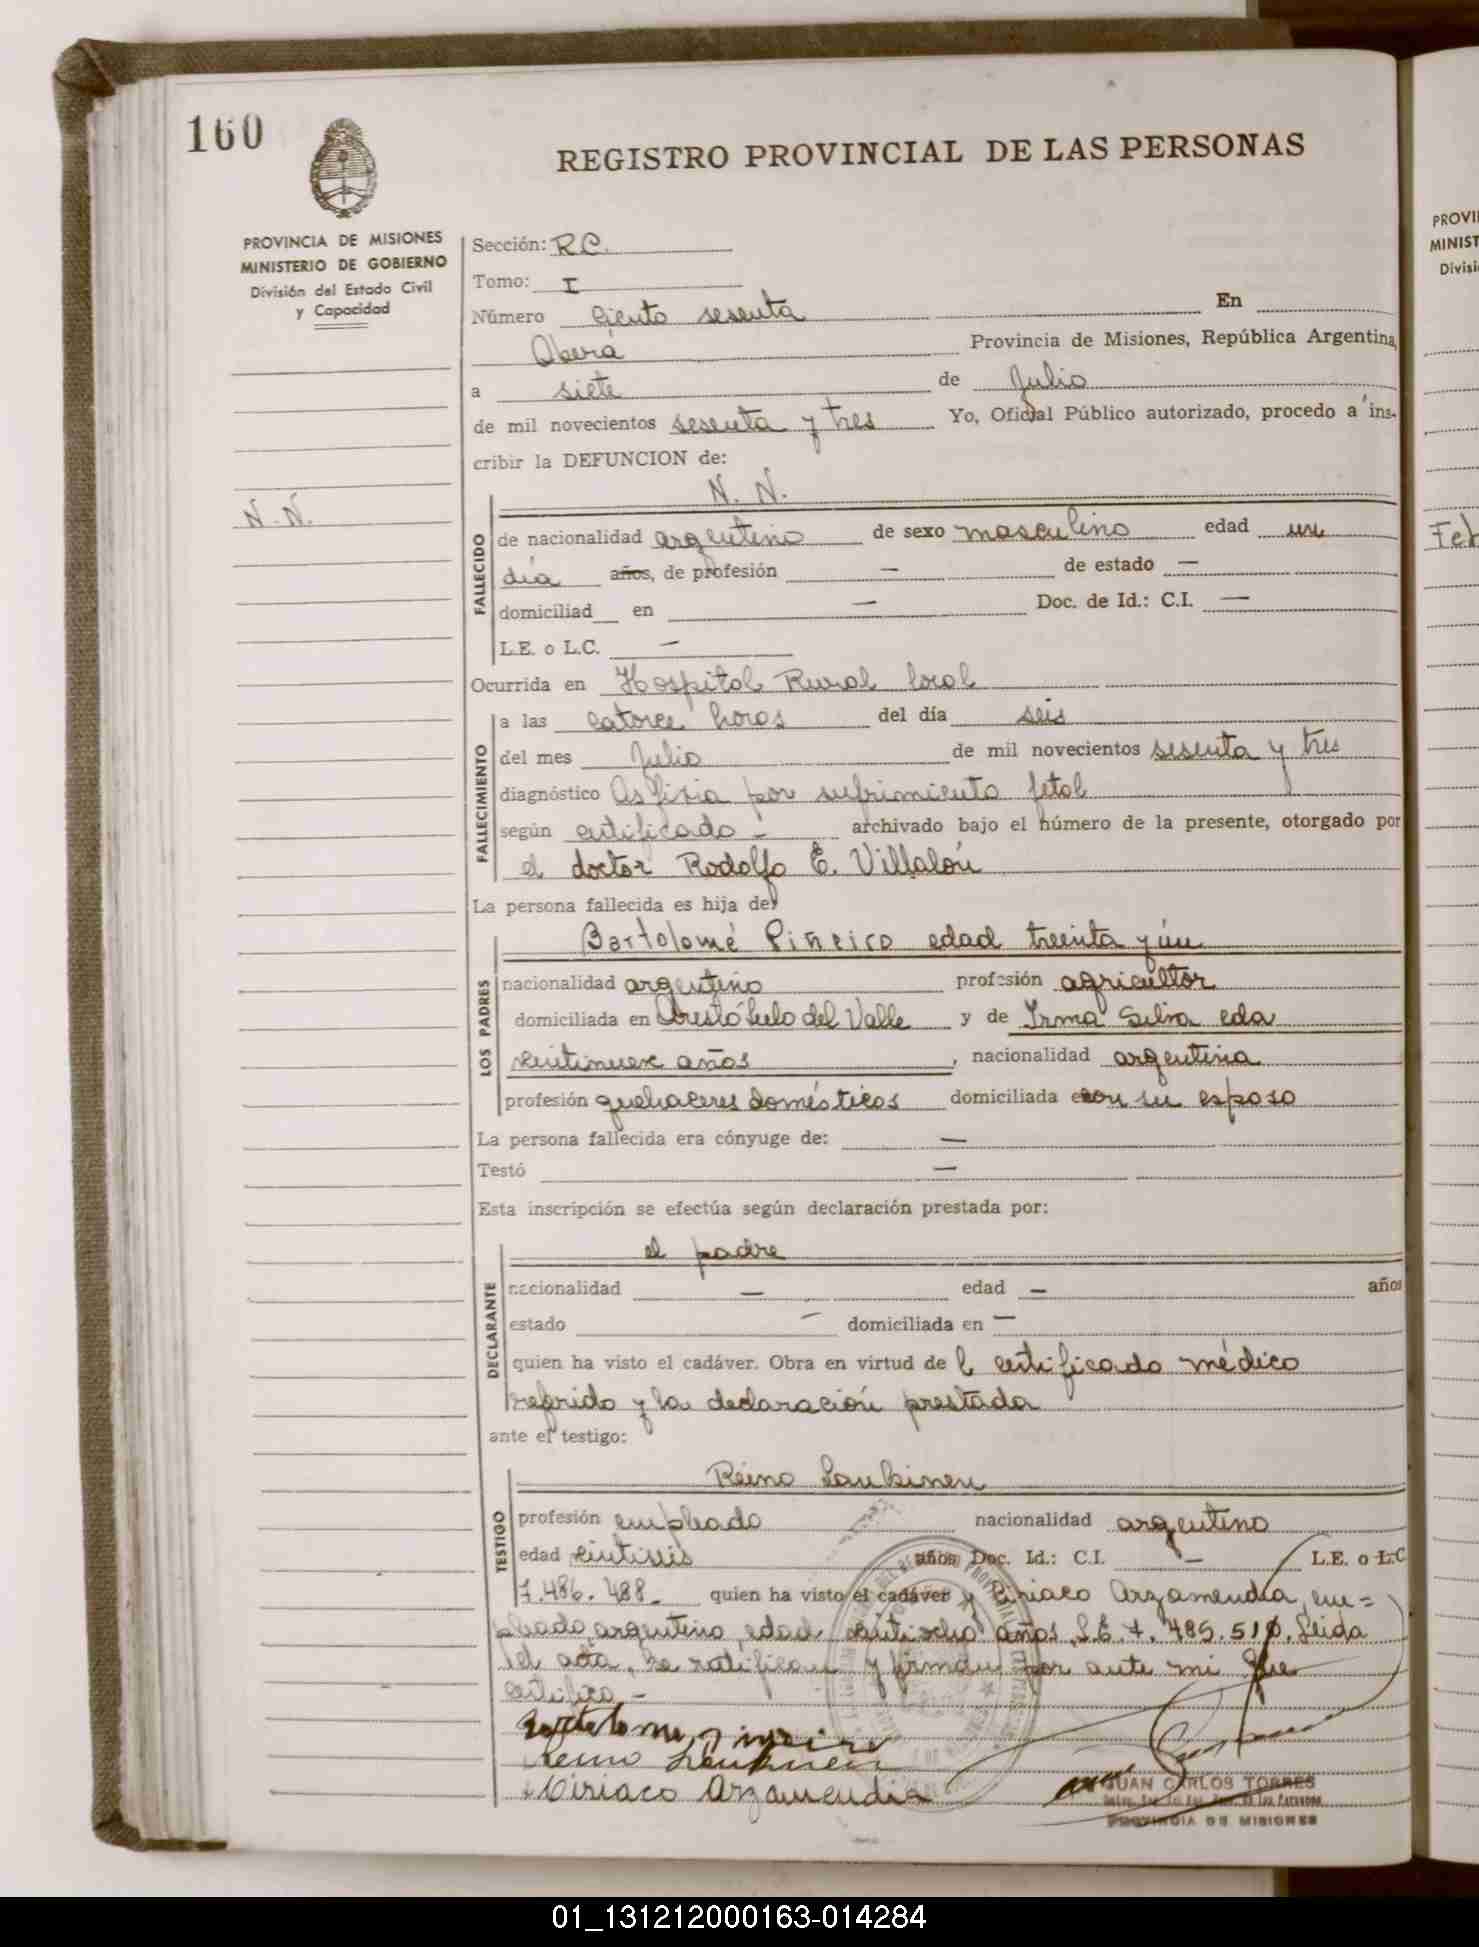 160
REGISTRO PROVINCIAL DE LAS PERSONAS
PROVINCIA DE MISIONES
MINISTERIO DE GOBIERNO
División del Estado Civil
y Capacidad
Sección: R.C.
Tomo: I
Número ciento sesenta En
Oberá Provincia de Misiones, República Argentina,
a siete de Julio
de mil novecientos sesenta y tres Yo, Oficial Público autorizado, procedo a ins-
cribir la DEFUNCION de:
N. N.
N. N.
FALLECIDO
de nacionalidad argentino de sexo masculino edad un
día años, de profesión — de estado —
domiciliad en — Doc. de Id.: C.I. —
L.E. o L.C. —
Ocurrida en Hospital Rural local
FALLECIMIENTO
a las catorce horas del día seis
del mes Julio de mil novecientos sesenta y tres
diagnóstico Asfixia por sufrimiento fetal
según certificado - archivado bajo el número de la presente, otorgado por
el doctor Rodolfo E. Villalón
La persona fallecida es hija de:
LOS PADRES
Bartolomé Piñeiro edad treinta y un
nacionalidad argentino profesión agricultor
domiciliada en Aristóbulo del Valle y de Irma Silva eda
veintinueve años, nacionalidad argentina
profesión quehaceres domésticos domiciliada con su esposo
La persona fallecida era cónyuge de: —
Testó —
Esta inscripción se efectúa según declaración prestada por:
DECLARANTE
el padre
nacionalidad — edad — años
estado — domiciliada en —
quien ha visto el cadáver. Obra en virtud de l certificado médico
referido y la declaración prestada
ante el testigo:
TESTIGO
Reino Laukinen
profesión empleado nacionalidad argentino
edad veintiseis años Doc. Id.: C.I. — L.E. o L.C
7.486.488- quien ha visto el cadáver y Ciriaco Arzamendia, em=
pleado, argentino, edad veintiocho años, L.E. 7.485.510. Leida
el acta, la ratifican y firman por ante mi que
certifico. -
Bartolome Piñeiro
Reino Laukinen
Ciriaco Arzamendia
JUAN CARLOS TORRES
PROVINCIA DE MISIONES
PROVI
MINIST
Divisi
Feb
01_131212000163-014284